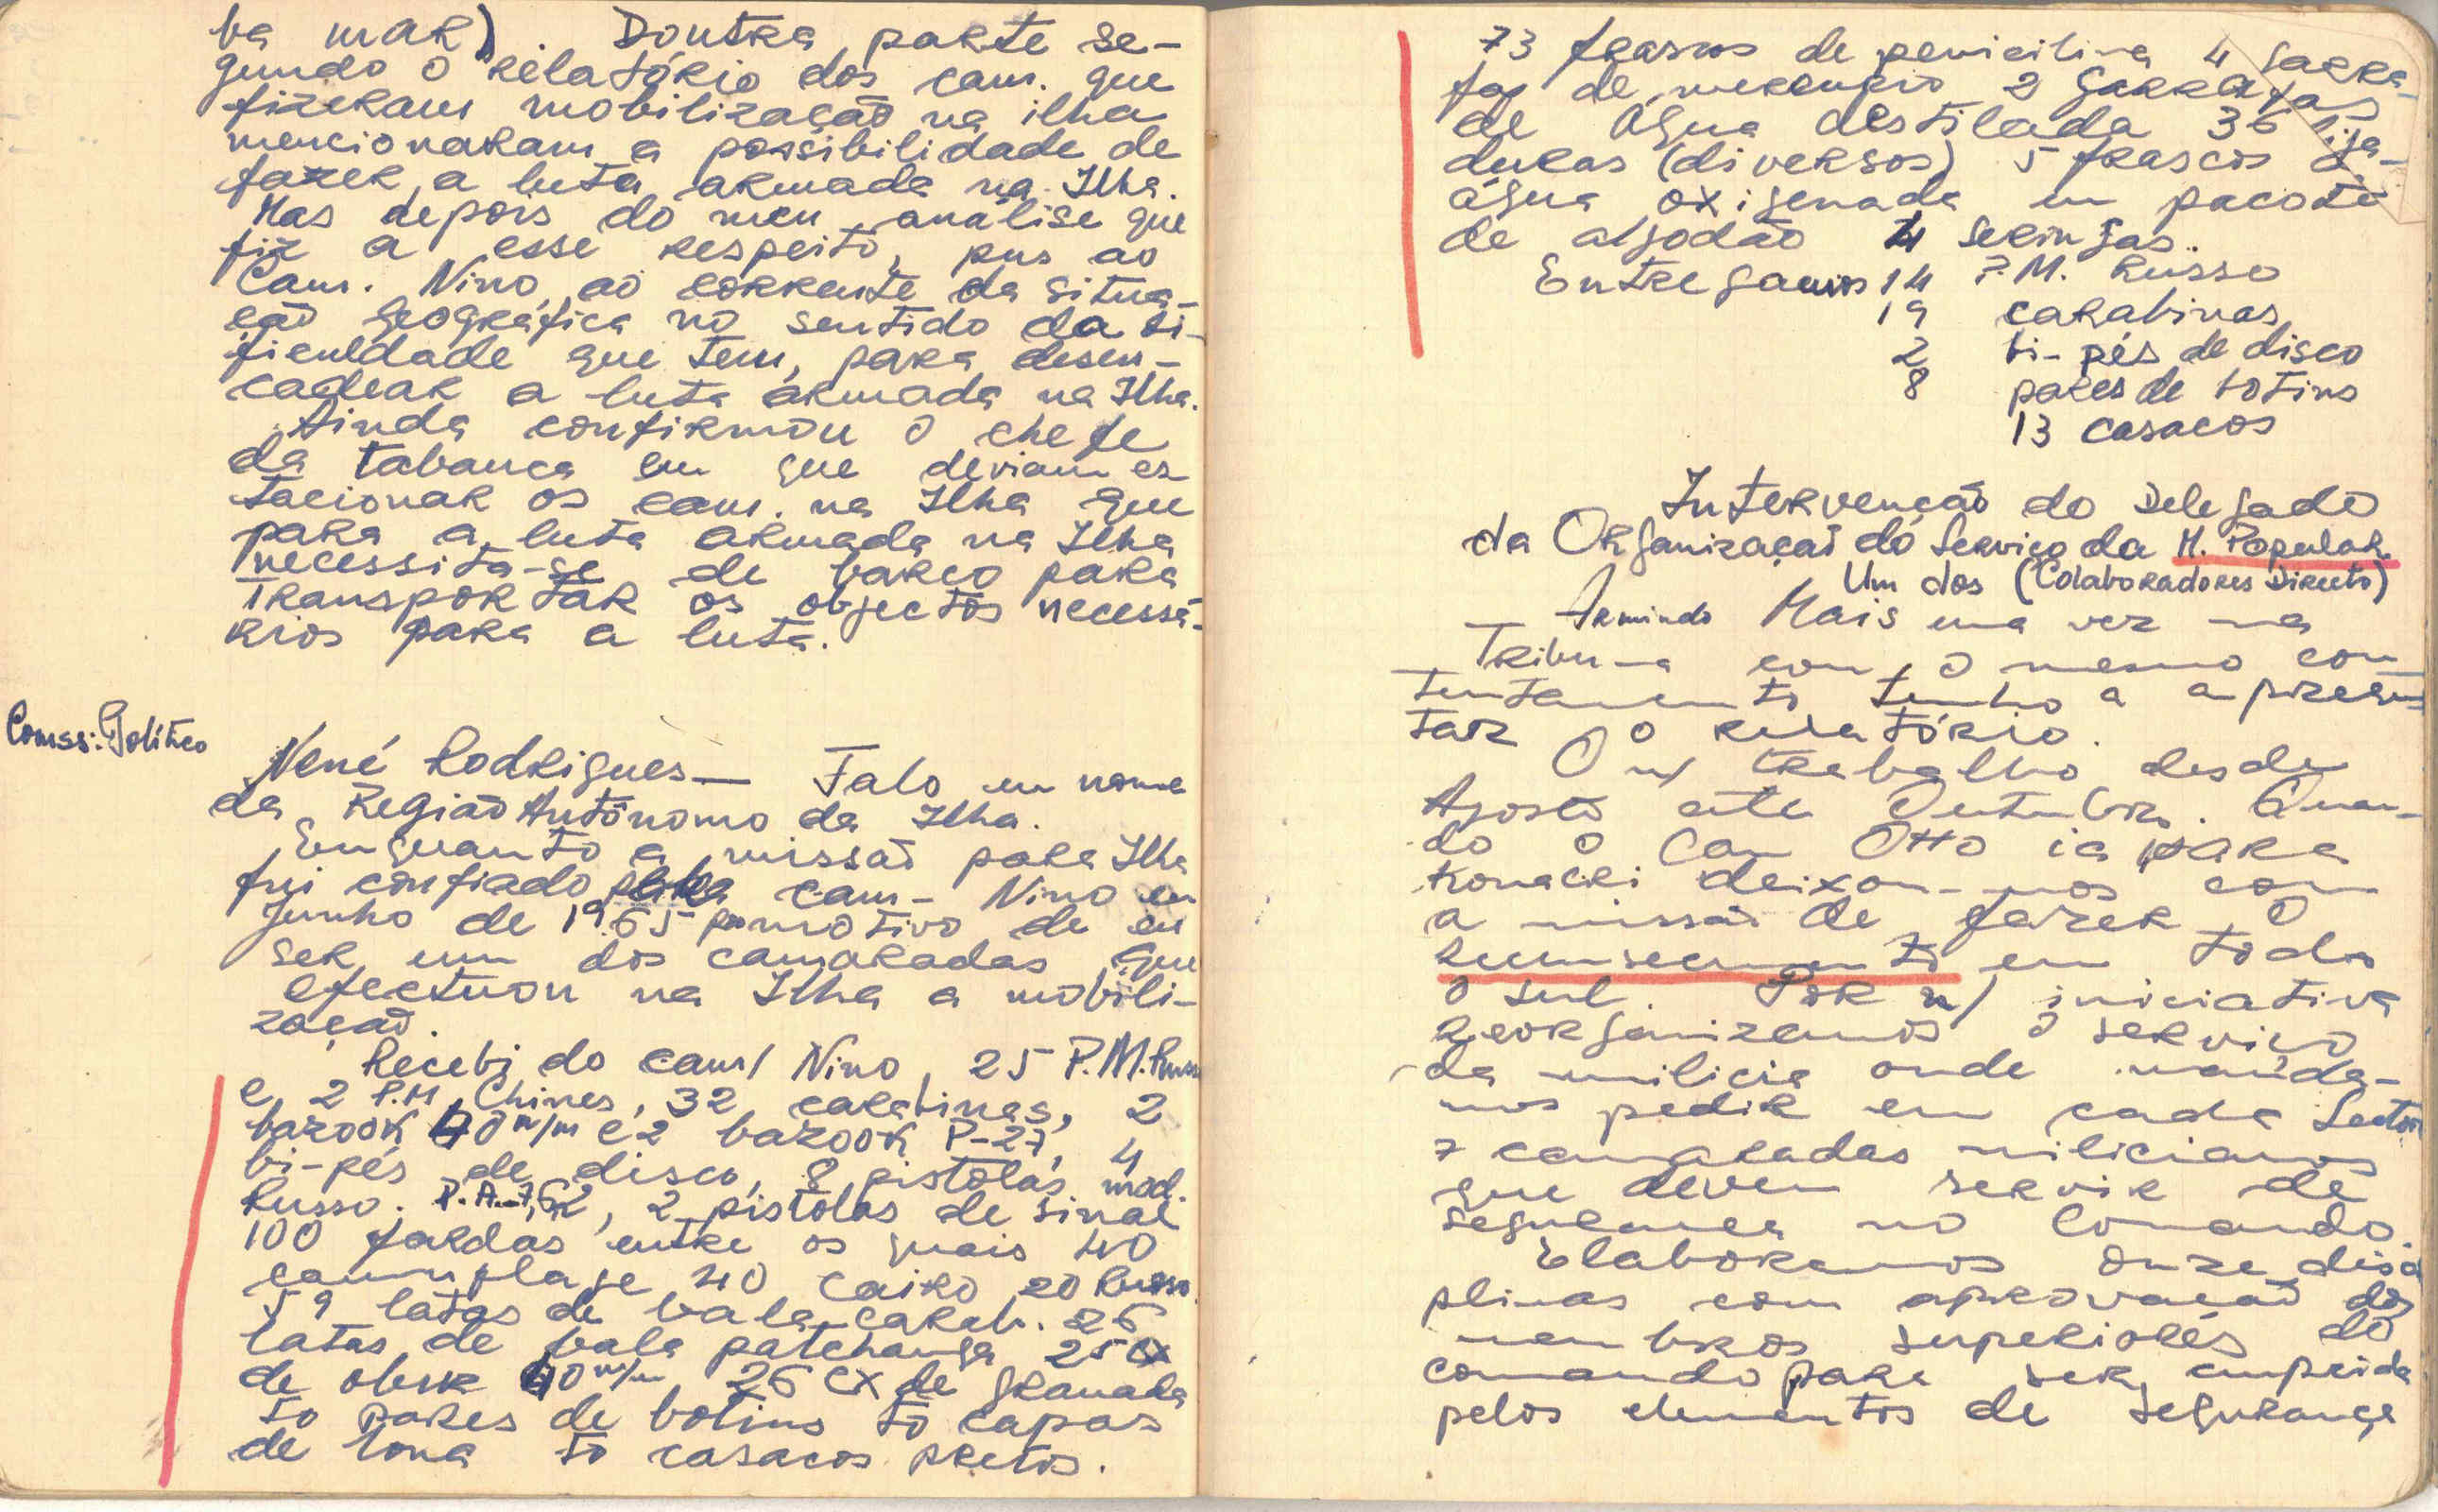 ba mar). Doutra parte se-
gundo o relatório dos cam. que
fizeram mobilização na ilha
mencionaram a possibilidade de
fazer a luta armada na Ilha.
Mas depois do meu análise que
fiz a esse respeito, pus ao
Cam. Nino ao corrente da situa-
ção geográfica no sentido da di-
ficuldade que tem, para desen-
cadear a luta armada na Ilha.
Ainda confirmou o chefe
da tabanca em que deviam es-
tacionar os cam. na Ilha que
para a luta armada na Ilha
necessita-se de barco para
transportar os objectos necessá-
rios para a luta.
Comss: Politico
Nené Rodrigues — Falo em nome
da Região Autônomo da Ilha.
Enquanto a missão para Ilha
fui confiado pelo cam- Nino em
Junho de 1965 por motivo de eu
ser um dos camaradas que
efectuou na Ilha a mobili-
zação.
Recebi do cam/ Nino, 25 P.M. Russo
e 2 P.M Chines, 32 carabinas, 2
bazook 40 m/m e 2 bazook P-27, 4
bi-pés de disco, 8 pistolas mod.
Russo. P.A. 7,62, 2 pistolas de sinal
100 fardas entre os quais 40
camuplage 40 Cairo 20 Russo.
59 latas de bala carab. 26
latas de bala patchanga 25 cx
de obuk 60 m/m 26 cx de granada
50 pares de botins 50 capas
de lona 50 casacos pretos.
73 frascos de penicilina 4 garra-
fas de mercurio 2 garrafas
de água destilada 36 liga-
duras (diversos) 5 frascos de
água oxigenada um pacote
de algodão 4 seringas.
Entregamos 14 P.M. Russo
19 carabinas
2 bi-pés de disco
8 pares de botins
13 casacos
Intervenção do Delegado
da Organização do Serviço da M. Popular.
Um dos (Colaboradores Directo)
— Armindo Mais uma vez na
Tribuna com o mesmo con-
tentamento tenho a apresen-
tar o relatório.
O n/ trabalho desde
Agosto até Outubro. Quan-
do o Cam Otto ia para
Konacri deixou-nos com
a missão de fazer o
recenseamento em todo
o sul. Por n/ iniciativa
reorganizamos o serviço
da milicia onde manda-
mos pedir em cada Sector
7 camaradas milicianos
que devem servir de
segurança no Comando.
Elaboramos onze disci
plinas com aprovação dos
membros superiores do
comando para ser cumprida
pelos elementos de segurança